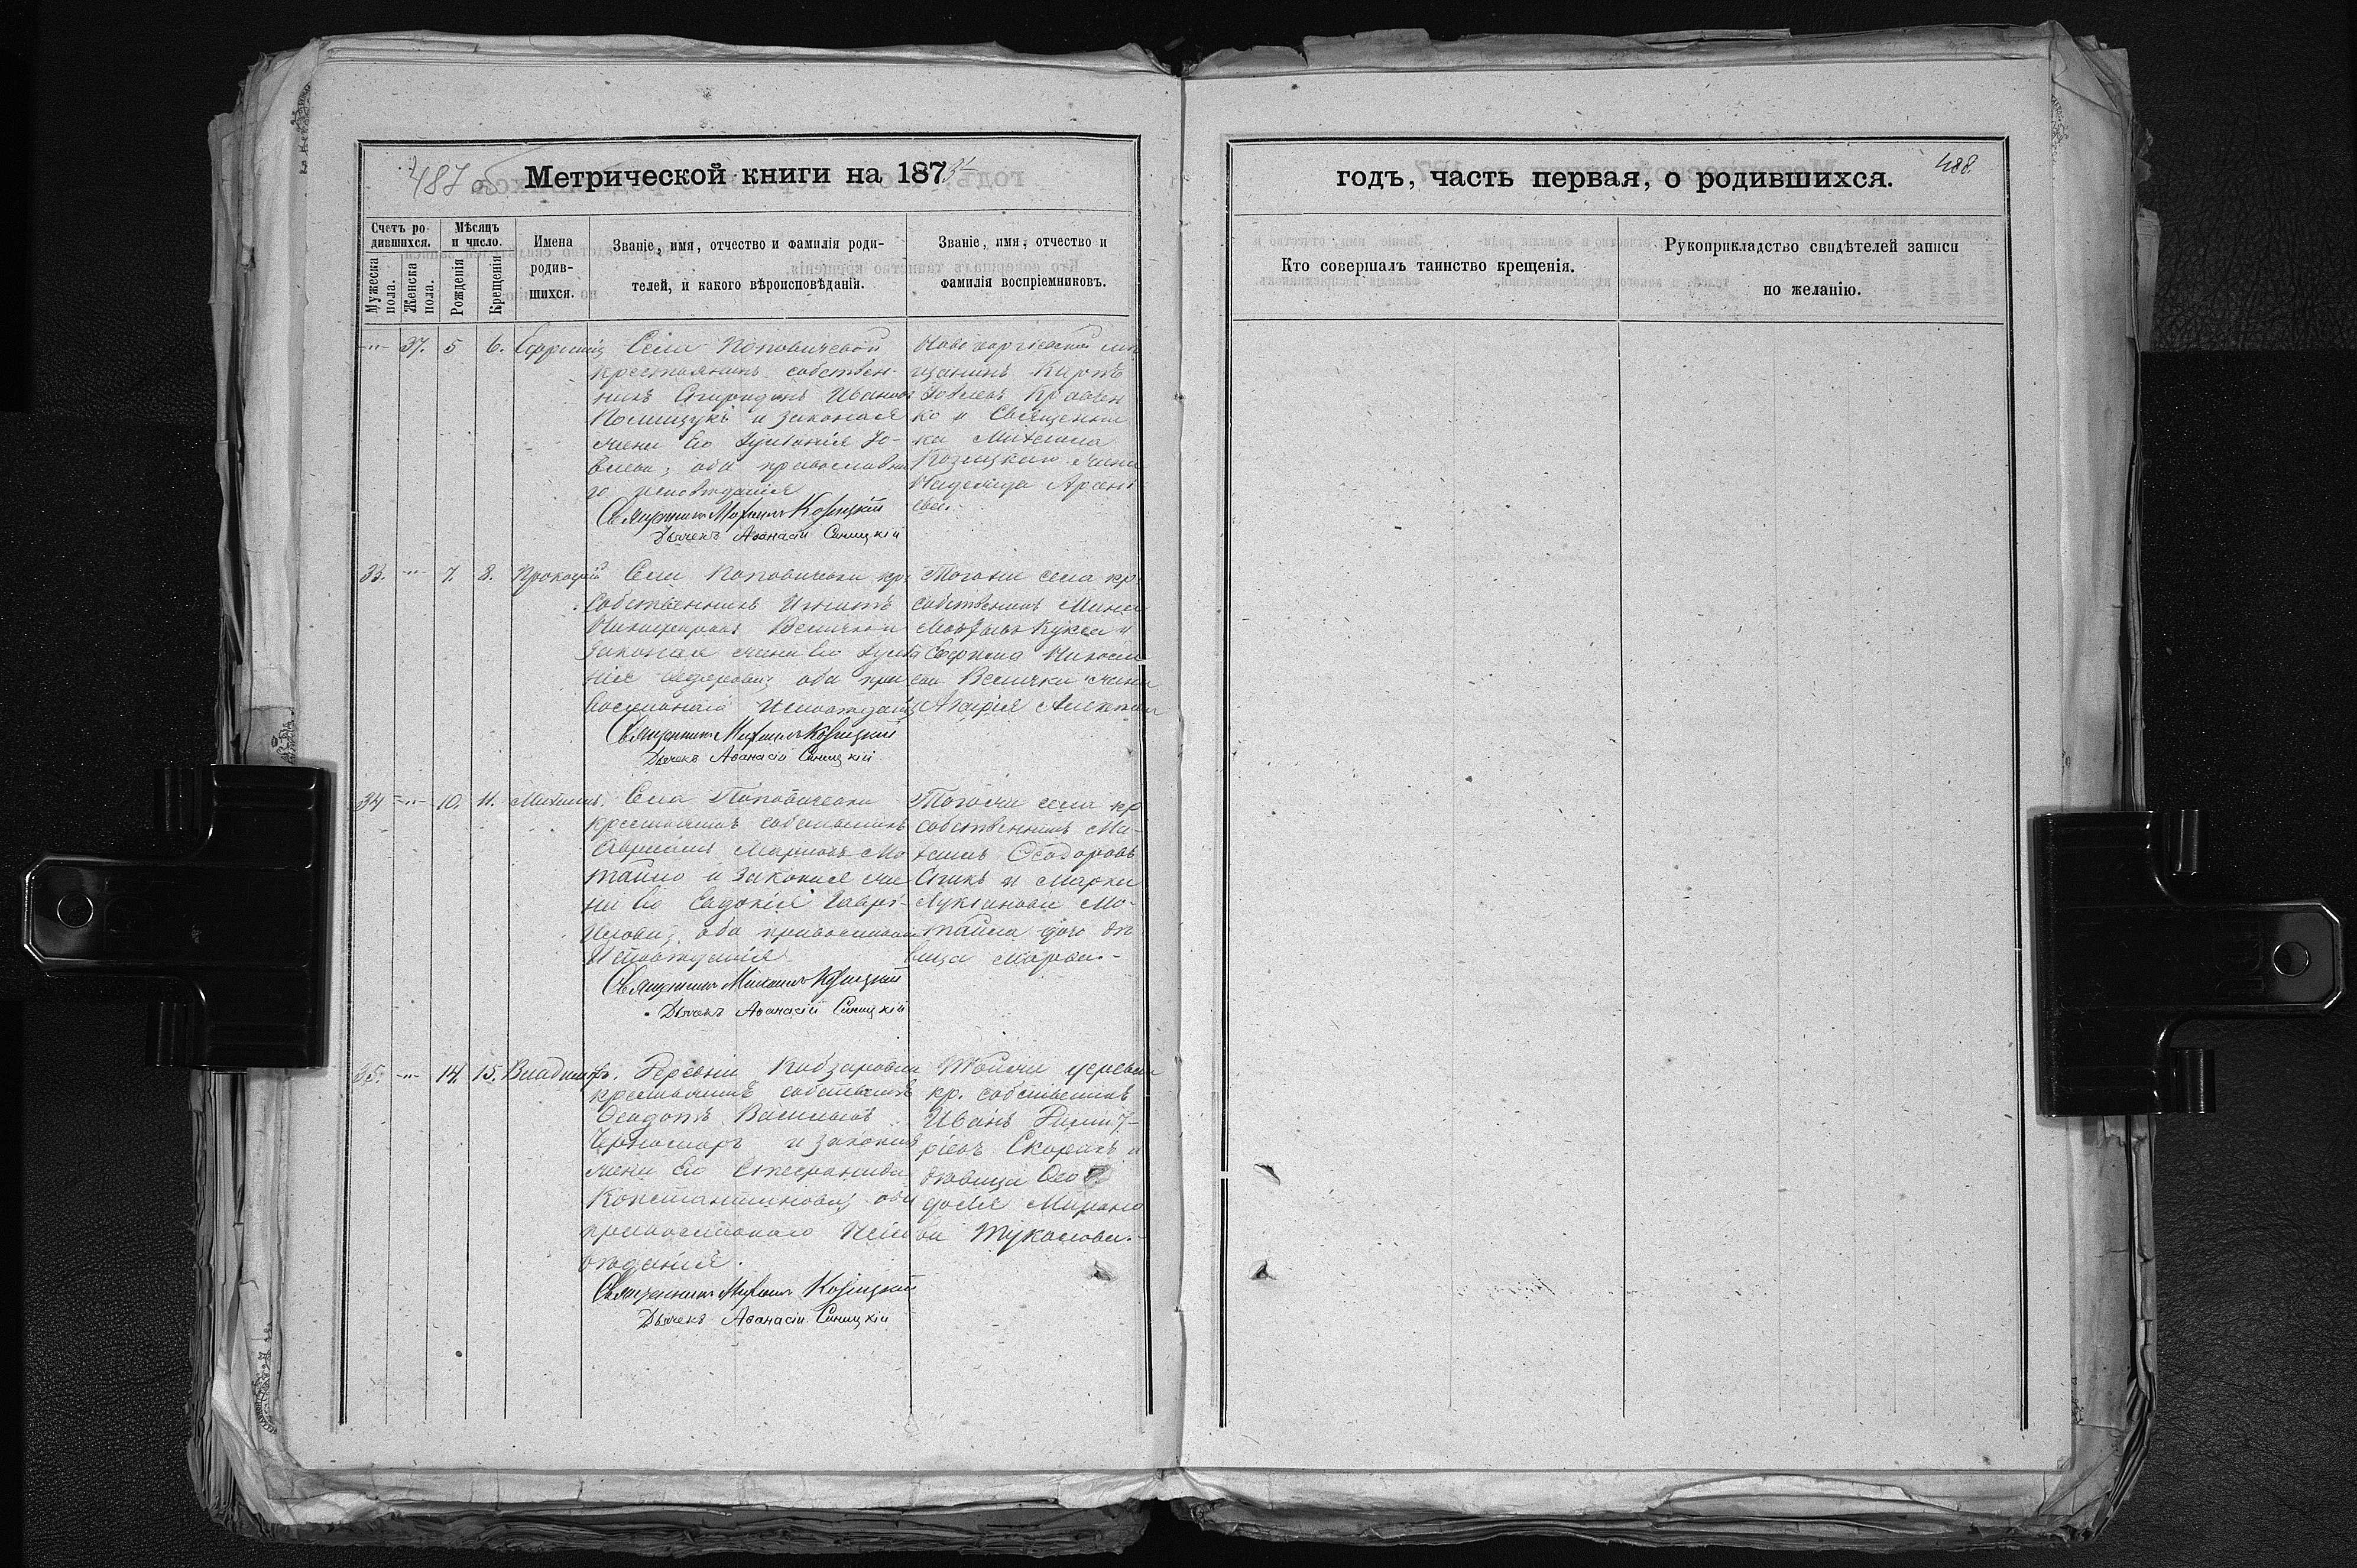 487 об
Метрической книги на 1873
Счетъ ро-
дившихся.
Мѣсяцъ
и число.
Мужеска
пола.
Женска
пола.
Рожденія
Крещенія
Имена
родив-
шихся.
Званіе, имя, отчество и фамилія роди-
телей, и какого вѣроисповѣданія.
Званіе, имя, отчество и
фамилія воспріемниковъ.
37. 5 6.
Села Поповичевки
крестьянинъ собствен-
никъ Спиридонъ Ивановъ
Полищукъ и законная
жена его Іуліанія Іо-
влева; оба православна
го исповѣданія
Священникъ Михаилъ Козицкий
Дьячекъ Аѳанасій Синицкій
щанинъ Карпъ
Іовлевъ Кравчен
ко и Священни
ка Михаила
Козицкаго жена
Надежда Арсенi
ева.
33. 7. 8. Прокопій
Села Поповичевки кр.
собственникъ Игнатъ
Никифоровъ Величко и
законная жена его Іулiа
нія Федорова; оба пра
вославнаго исповѣданія
Священникъ Михаилъ Козицкий
Дьячекъ Аѳанасій Синицкій
Тогоже села кр.
собственникъ
и
Величка жена
34 10. 11. Михаилъ.
Села Поповичевки
крестьянинъ собственникъ
Марковъ Мо
тайло и законная же
на его Евдокія Гаврі-
илова; оба православнаго
исповѣданія
Священникъ Михаилъ Козицкий
Дьячекъ Аѳанасій Синицкій
Тогоже села кр
собственникъ Ми-
хаилъ Ѳеодоровъ
и Марка
Лукіанова Мо-
тайла дочь дѣ
вица Марѳа.
35. 14. 15. Владиміръ.
Деревни Кобзаровки
крестьянинъ собственникъ
Ѳеодотъ Васильевъ
Черноморъ и законная
жена его Стефанида
Константинова; оба
православнаго испо
вѣданія.
Священникъ Михаилъ Козицкий
Дьячекъ Аѳанасій Синицкій
Тойже деревни
кр. собственникъ
Иванъ Димит-
ріевъ Скорикъ и
дѣвица Ѳео
досія Мироно
ва Тукалова.
488.
годъ, часть первая, о родившихся.
Кто совершалъ таинство крещенія.
Рукоприкладство свидѣтелей записи
по желанію.